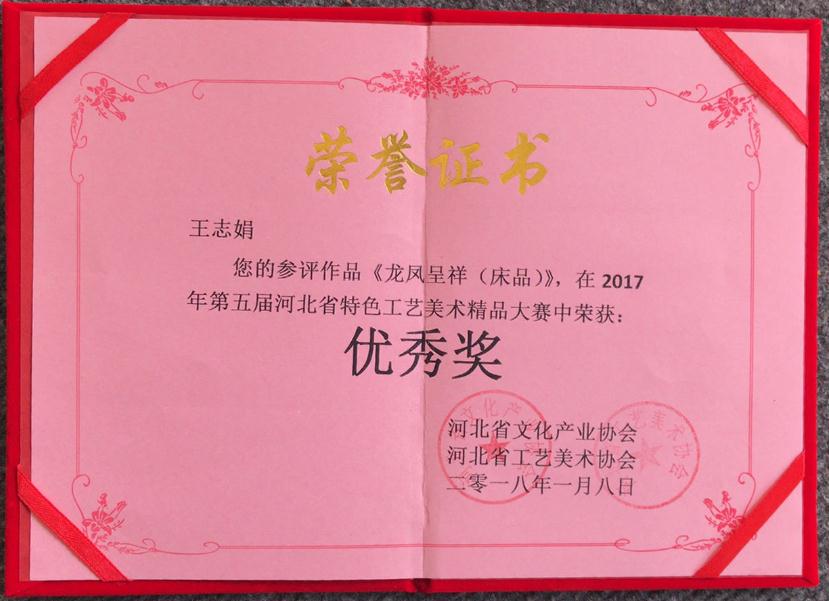 荣誉证书
王志娟
您的参评作品《龙凤呈祥（床品）》，在 2017
年第五届河北省特色工艺美术精品大赛中荣获：
优秀奖
河北省文化产业协会
河北省工艺美术协会
二零一八年一月八日